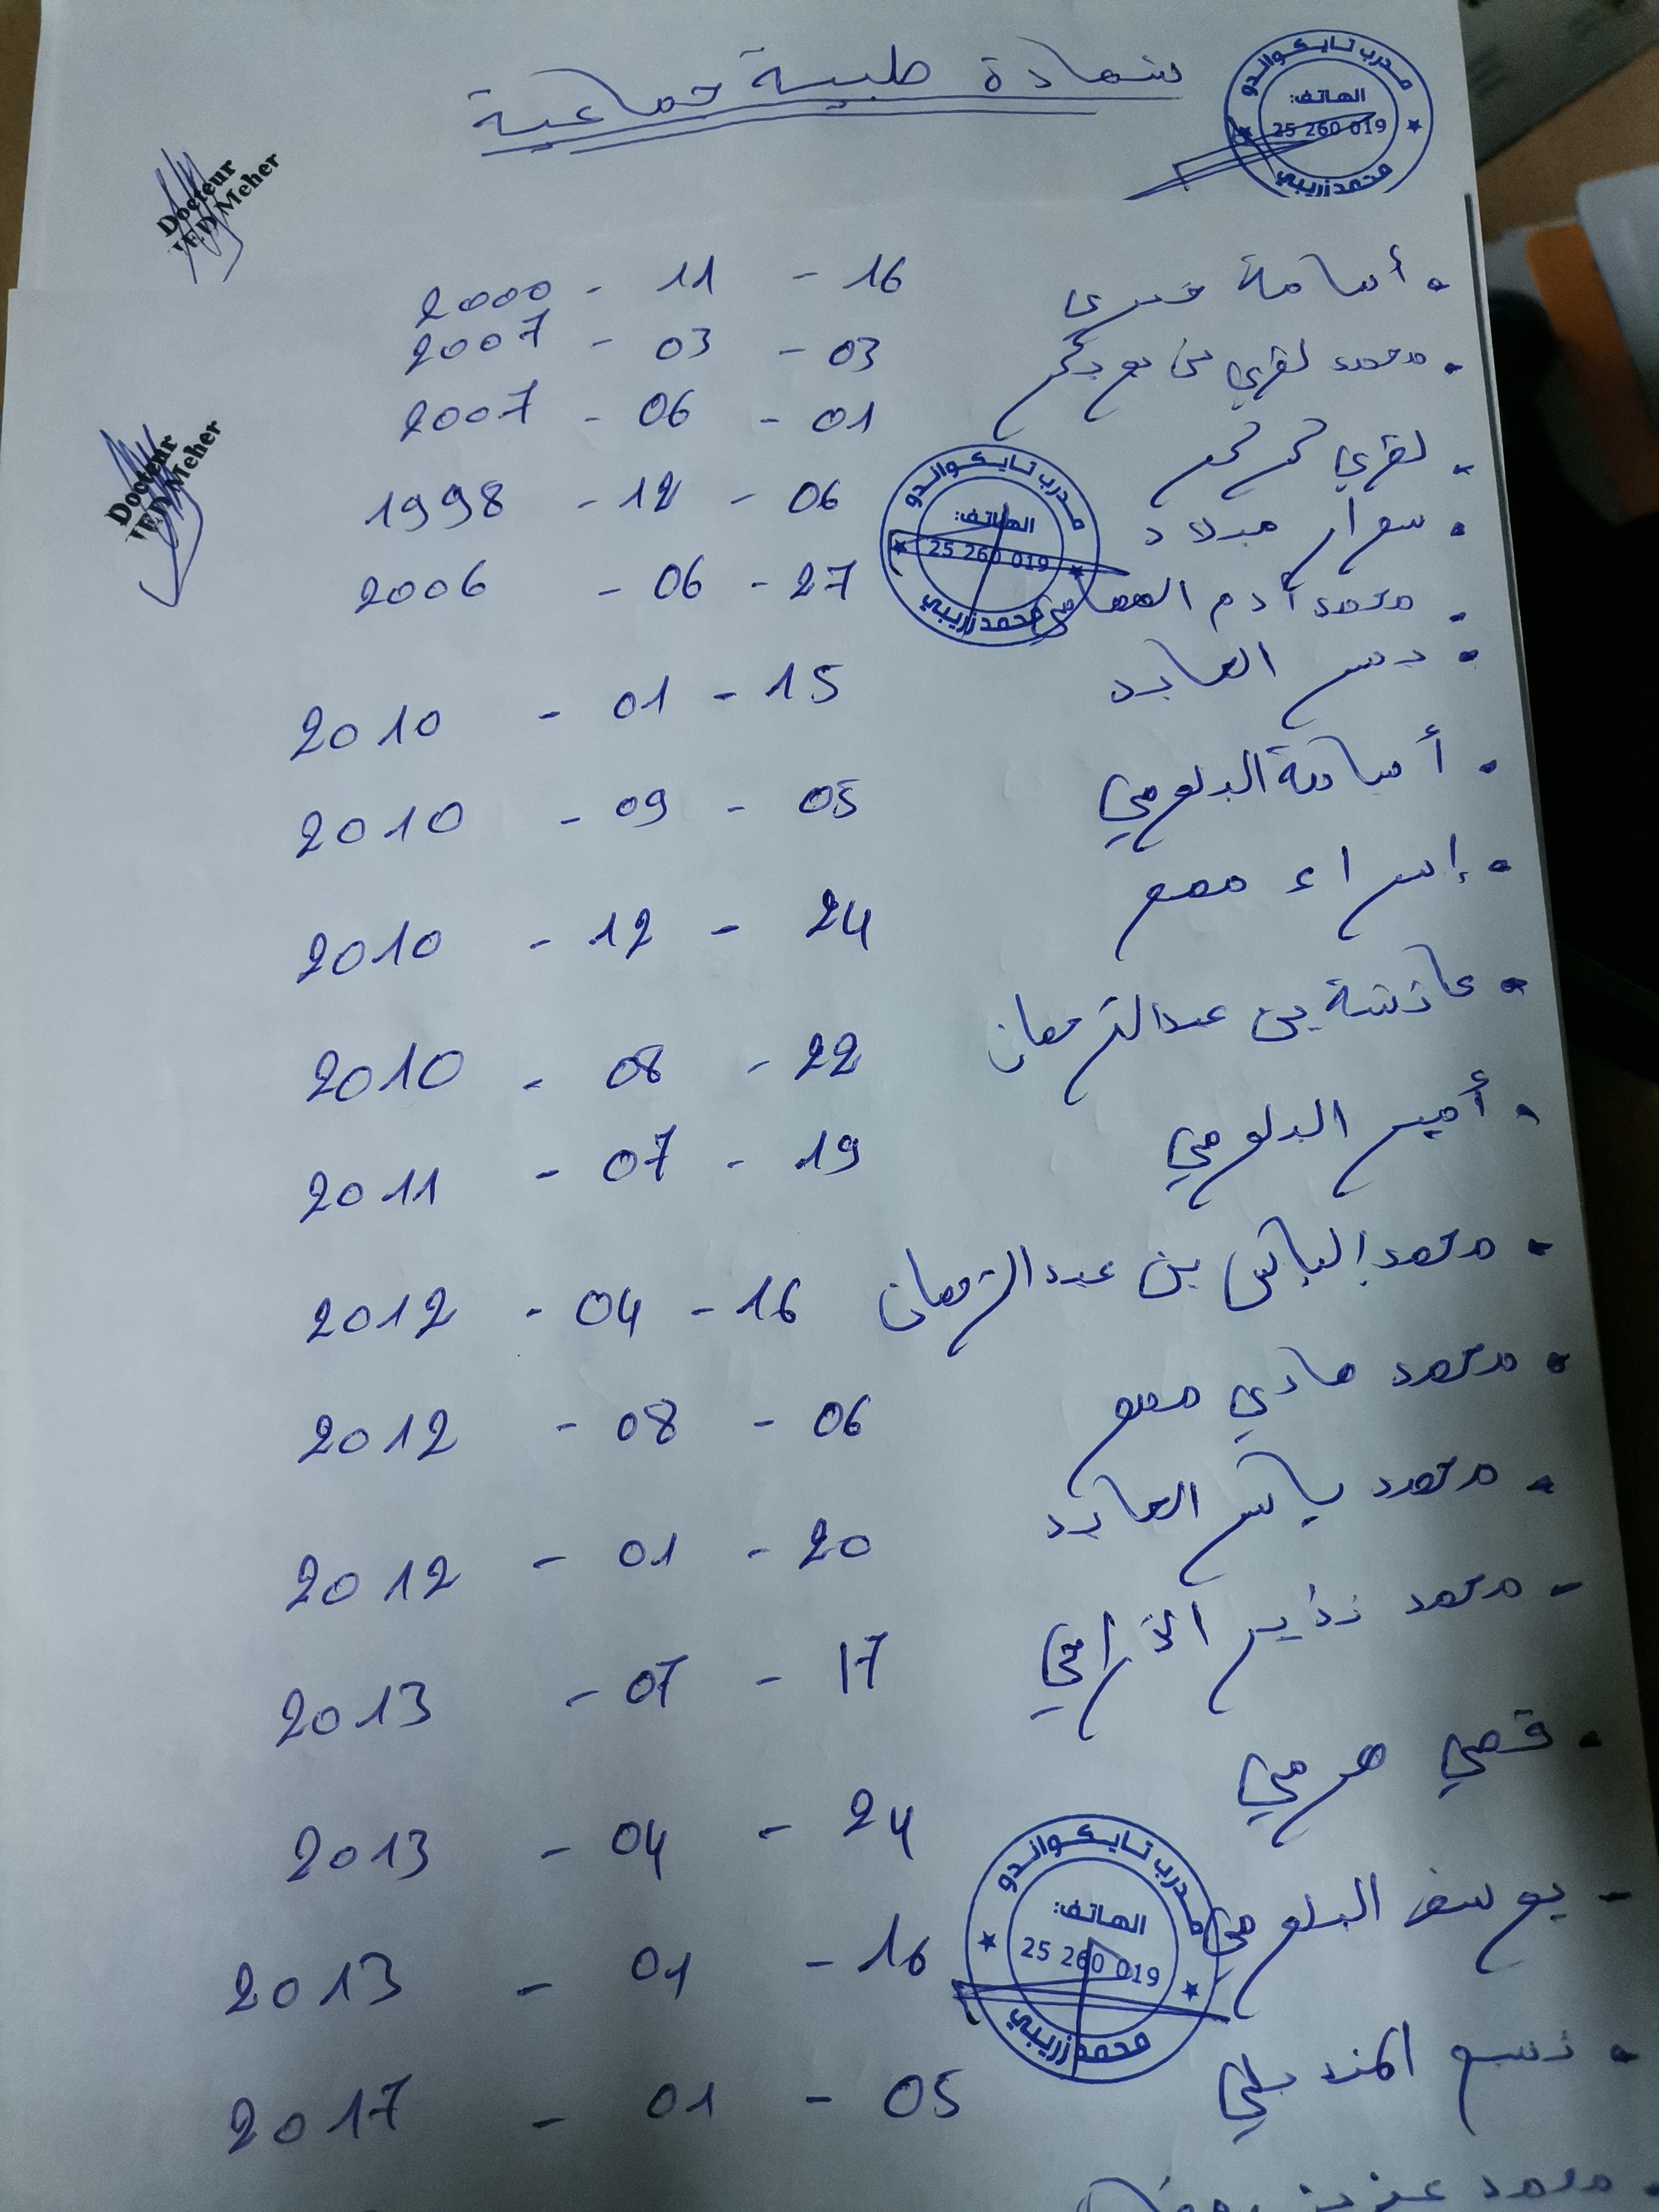 شهادة طبية جماعية
مدرب تايكواندو
الهاتف:
25 260 019
محمد زريبي
Docteur
Meher
أسامة 16 - 11 - 2000
محمد لغزي بن 03 - 03 - 2007
لغزي 01 - 06 - 2007
Docteur
Meher
سوار ميلاد 06 - 12 - 1998
مدرب تايكواندو
الهاتف:
25 260 019
محمد زريبي
محمد أدم 27 - 06 - 2006
العابد 15 - 01 - 2010
أسامة البلومي 05 - 09 - 2010
إسراء 24 - 12 - 2010
عائشة بن عبد الرحمان 22 - 08 - 2010
أمير البلومي 19 - 07 - 2011
محمد إلياس بن عبد الرحمان 16 - 04 - 2012
محمد هادي 06 - 08 - 2012
محمد ياسر العابد 20 - 01 - 2012
محمد نذير 17 - 07 - 2013
قصي هرمي 24 - 04 - 2013
يوسف البلومي 16 - 01 - 2013
مدرب تايكواندو
الهاتف:
25 260 019
محمد زريبي
05 - 01 - 2017
محمد عزيز